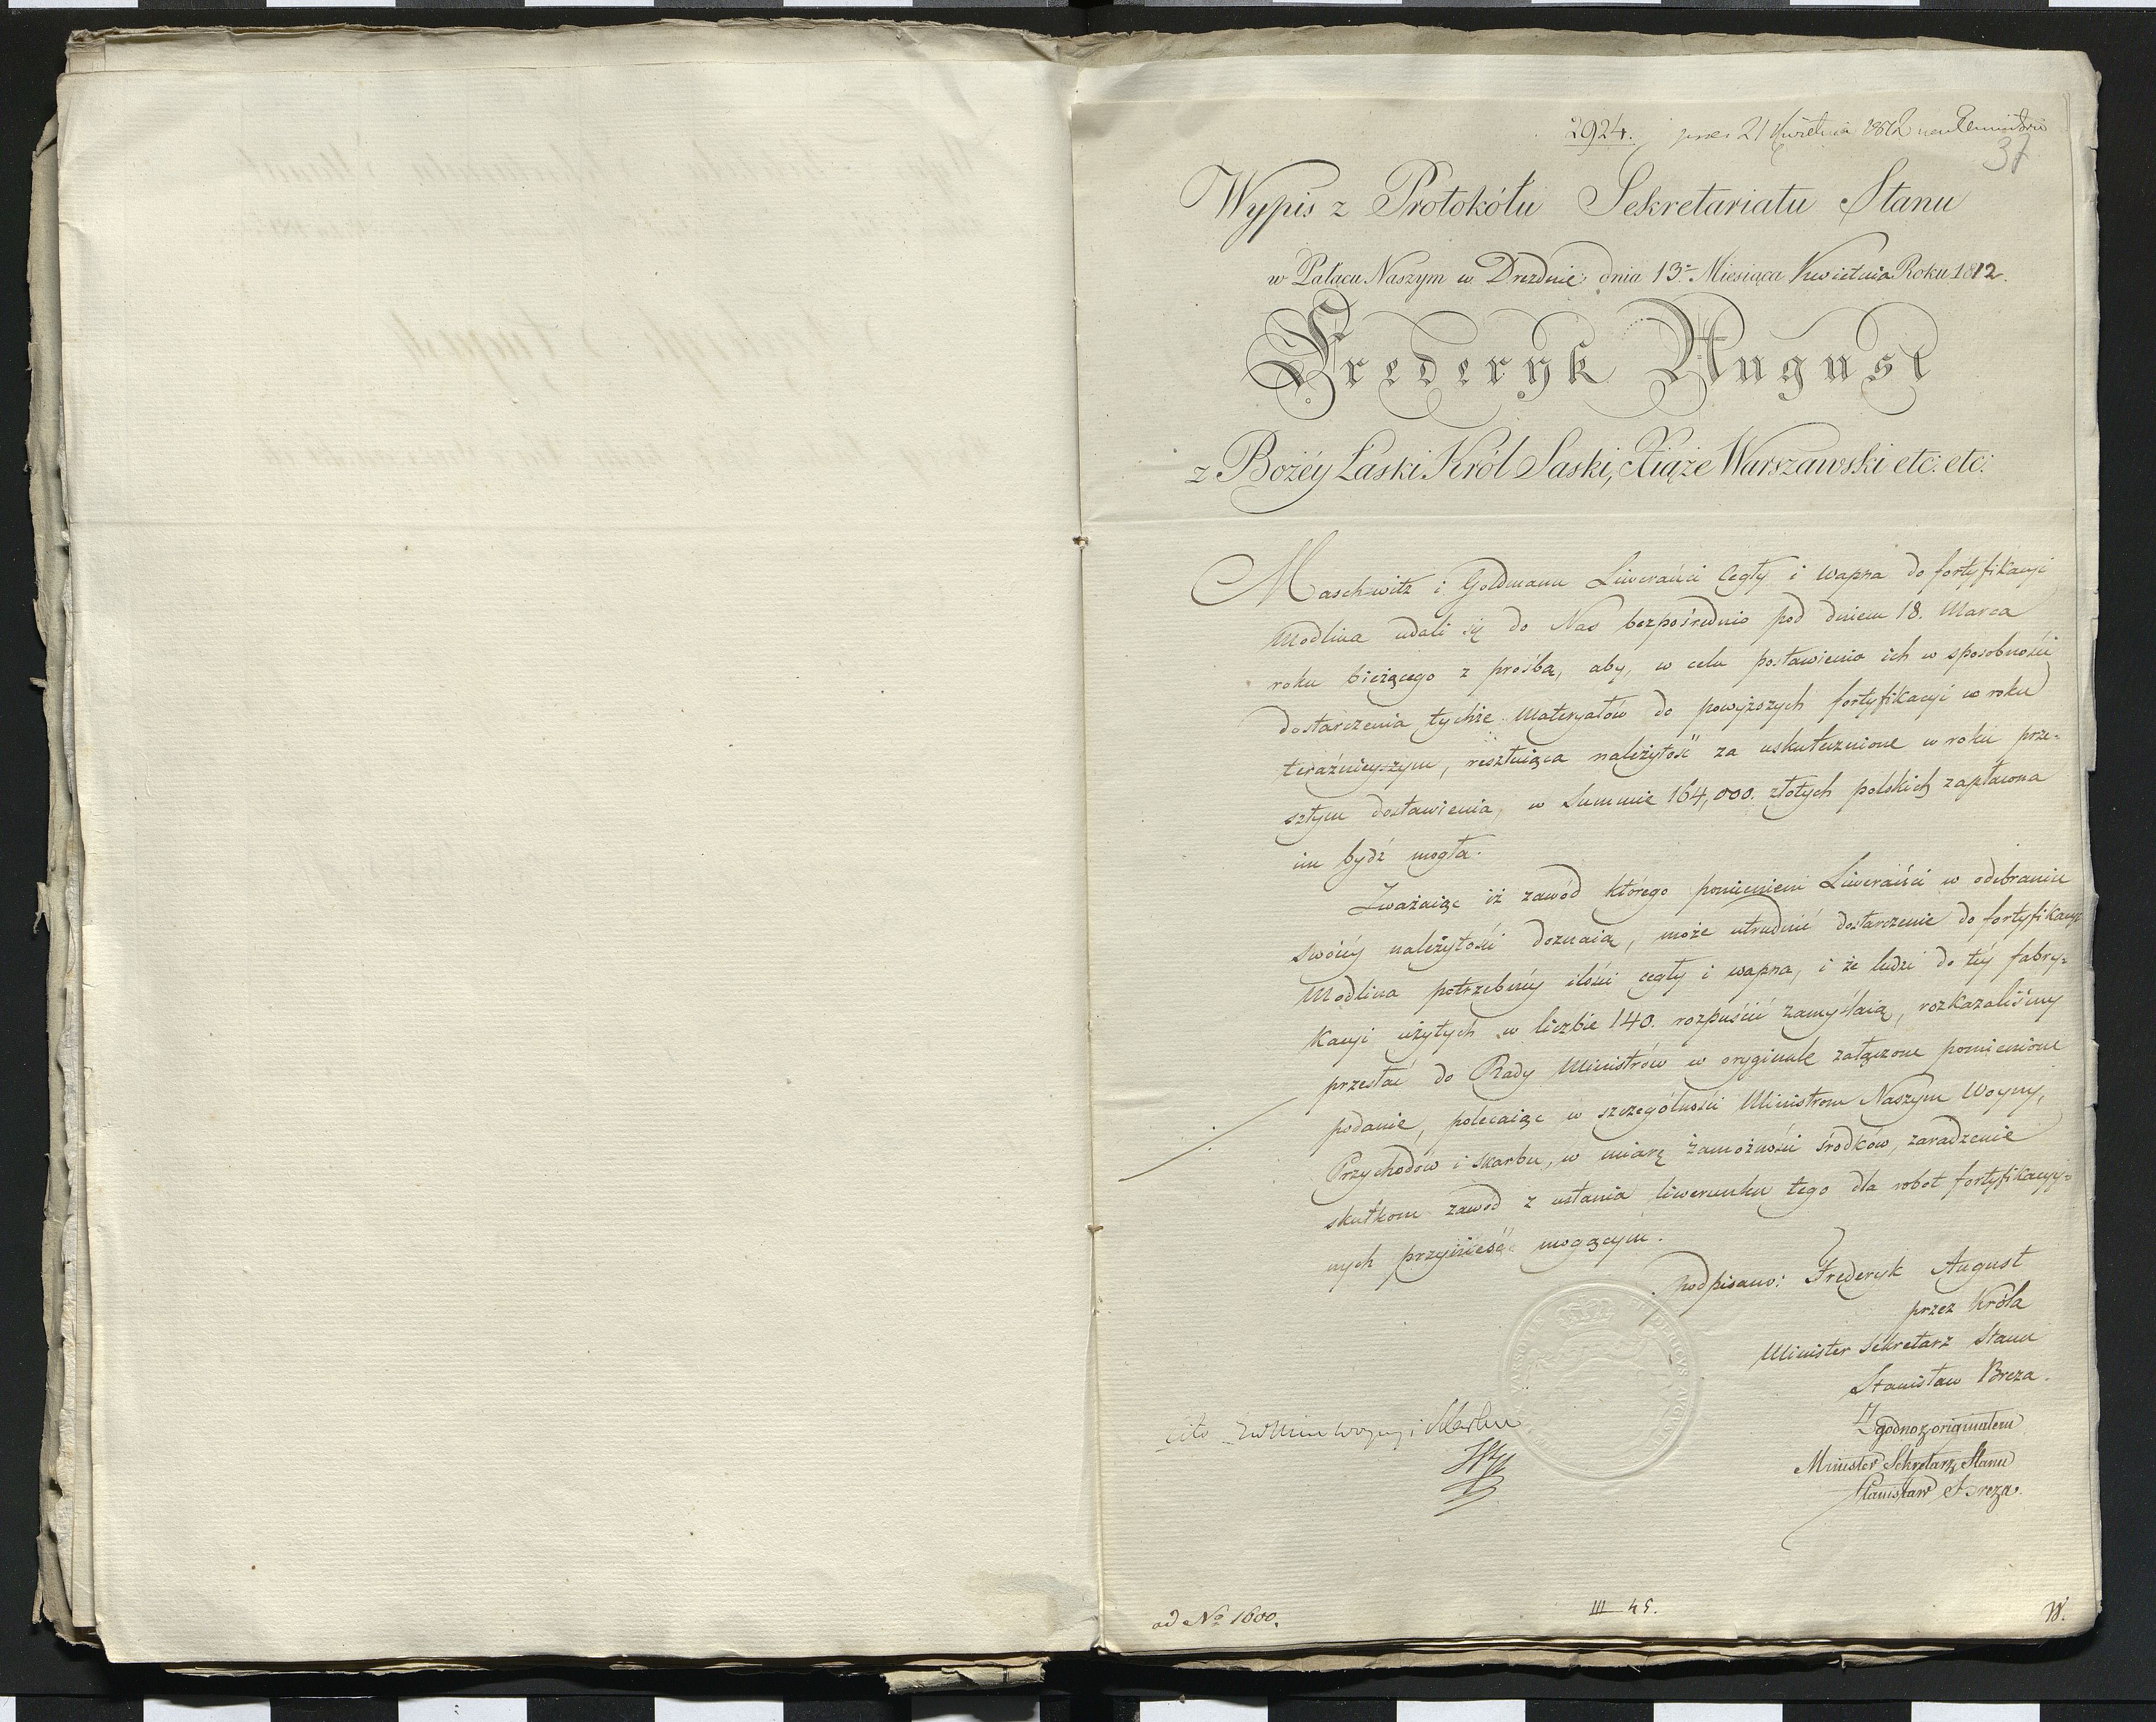 2924. 21 Kwietnia 1812
37
Wypis z Protokółu Sekretariatu Stanu
w Pałacu Naszym w Dreźnie dnia 13. Miesiąca Kwietnia Roku 1812.
Frederyk August
z Bożéy Łaski Król Saski, Xiąże Warszawski etc: etc:
Maschwitz i Goldmann Liweranci Cegły i wapna do fortyfikacyi
Modlina udali się do Nas bezpośrednio pod dniem 18. Marca
roku bieżącego z prośbą, aby, w celu postawienia ich w sposobności
dostarczenia tychże Materyałów do powyższych fortyfikacyi w roku
teraźnieyszym, resztuiąca należytość za uskutecznione w roku prze-
szłym dostawienia, w Summie 164,000. złotych polskich zapłacona
im bydź mogła.
Zważaiąc iż zawód którego pomienieni Liweranci w odebraniu
swoiéy należytości doznaią, może utrudnić dostarczenie do fortyfikacyi
Modlina potrzebnéy ilości cegły i wapna, i że ludzi do téy fabry-
kacyi użytych w liczbie 140. rozpuścić zamyślaią, rozkazaliśmy
przesłać do Rady Ministrów w oryginale załączone pomienione
podanie, polecaiąc w szczególności Ministrom Naszym Woyny,
Przychodów i skarbu, w miarę zamożności środków, zaradzenie
skutkom zawód z ustania liwerunku tego dla robot fortyfikacyy-
nych przynieść mogącym.
podpisano: Frederyk August
przez Króla
Minister Sekretarz Stanu
Stanisław Breza.
Zgodno z originałem
Minister Sekretarz Stanu
Stanisław Breza.
ad No 1600.
III 45.